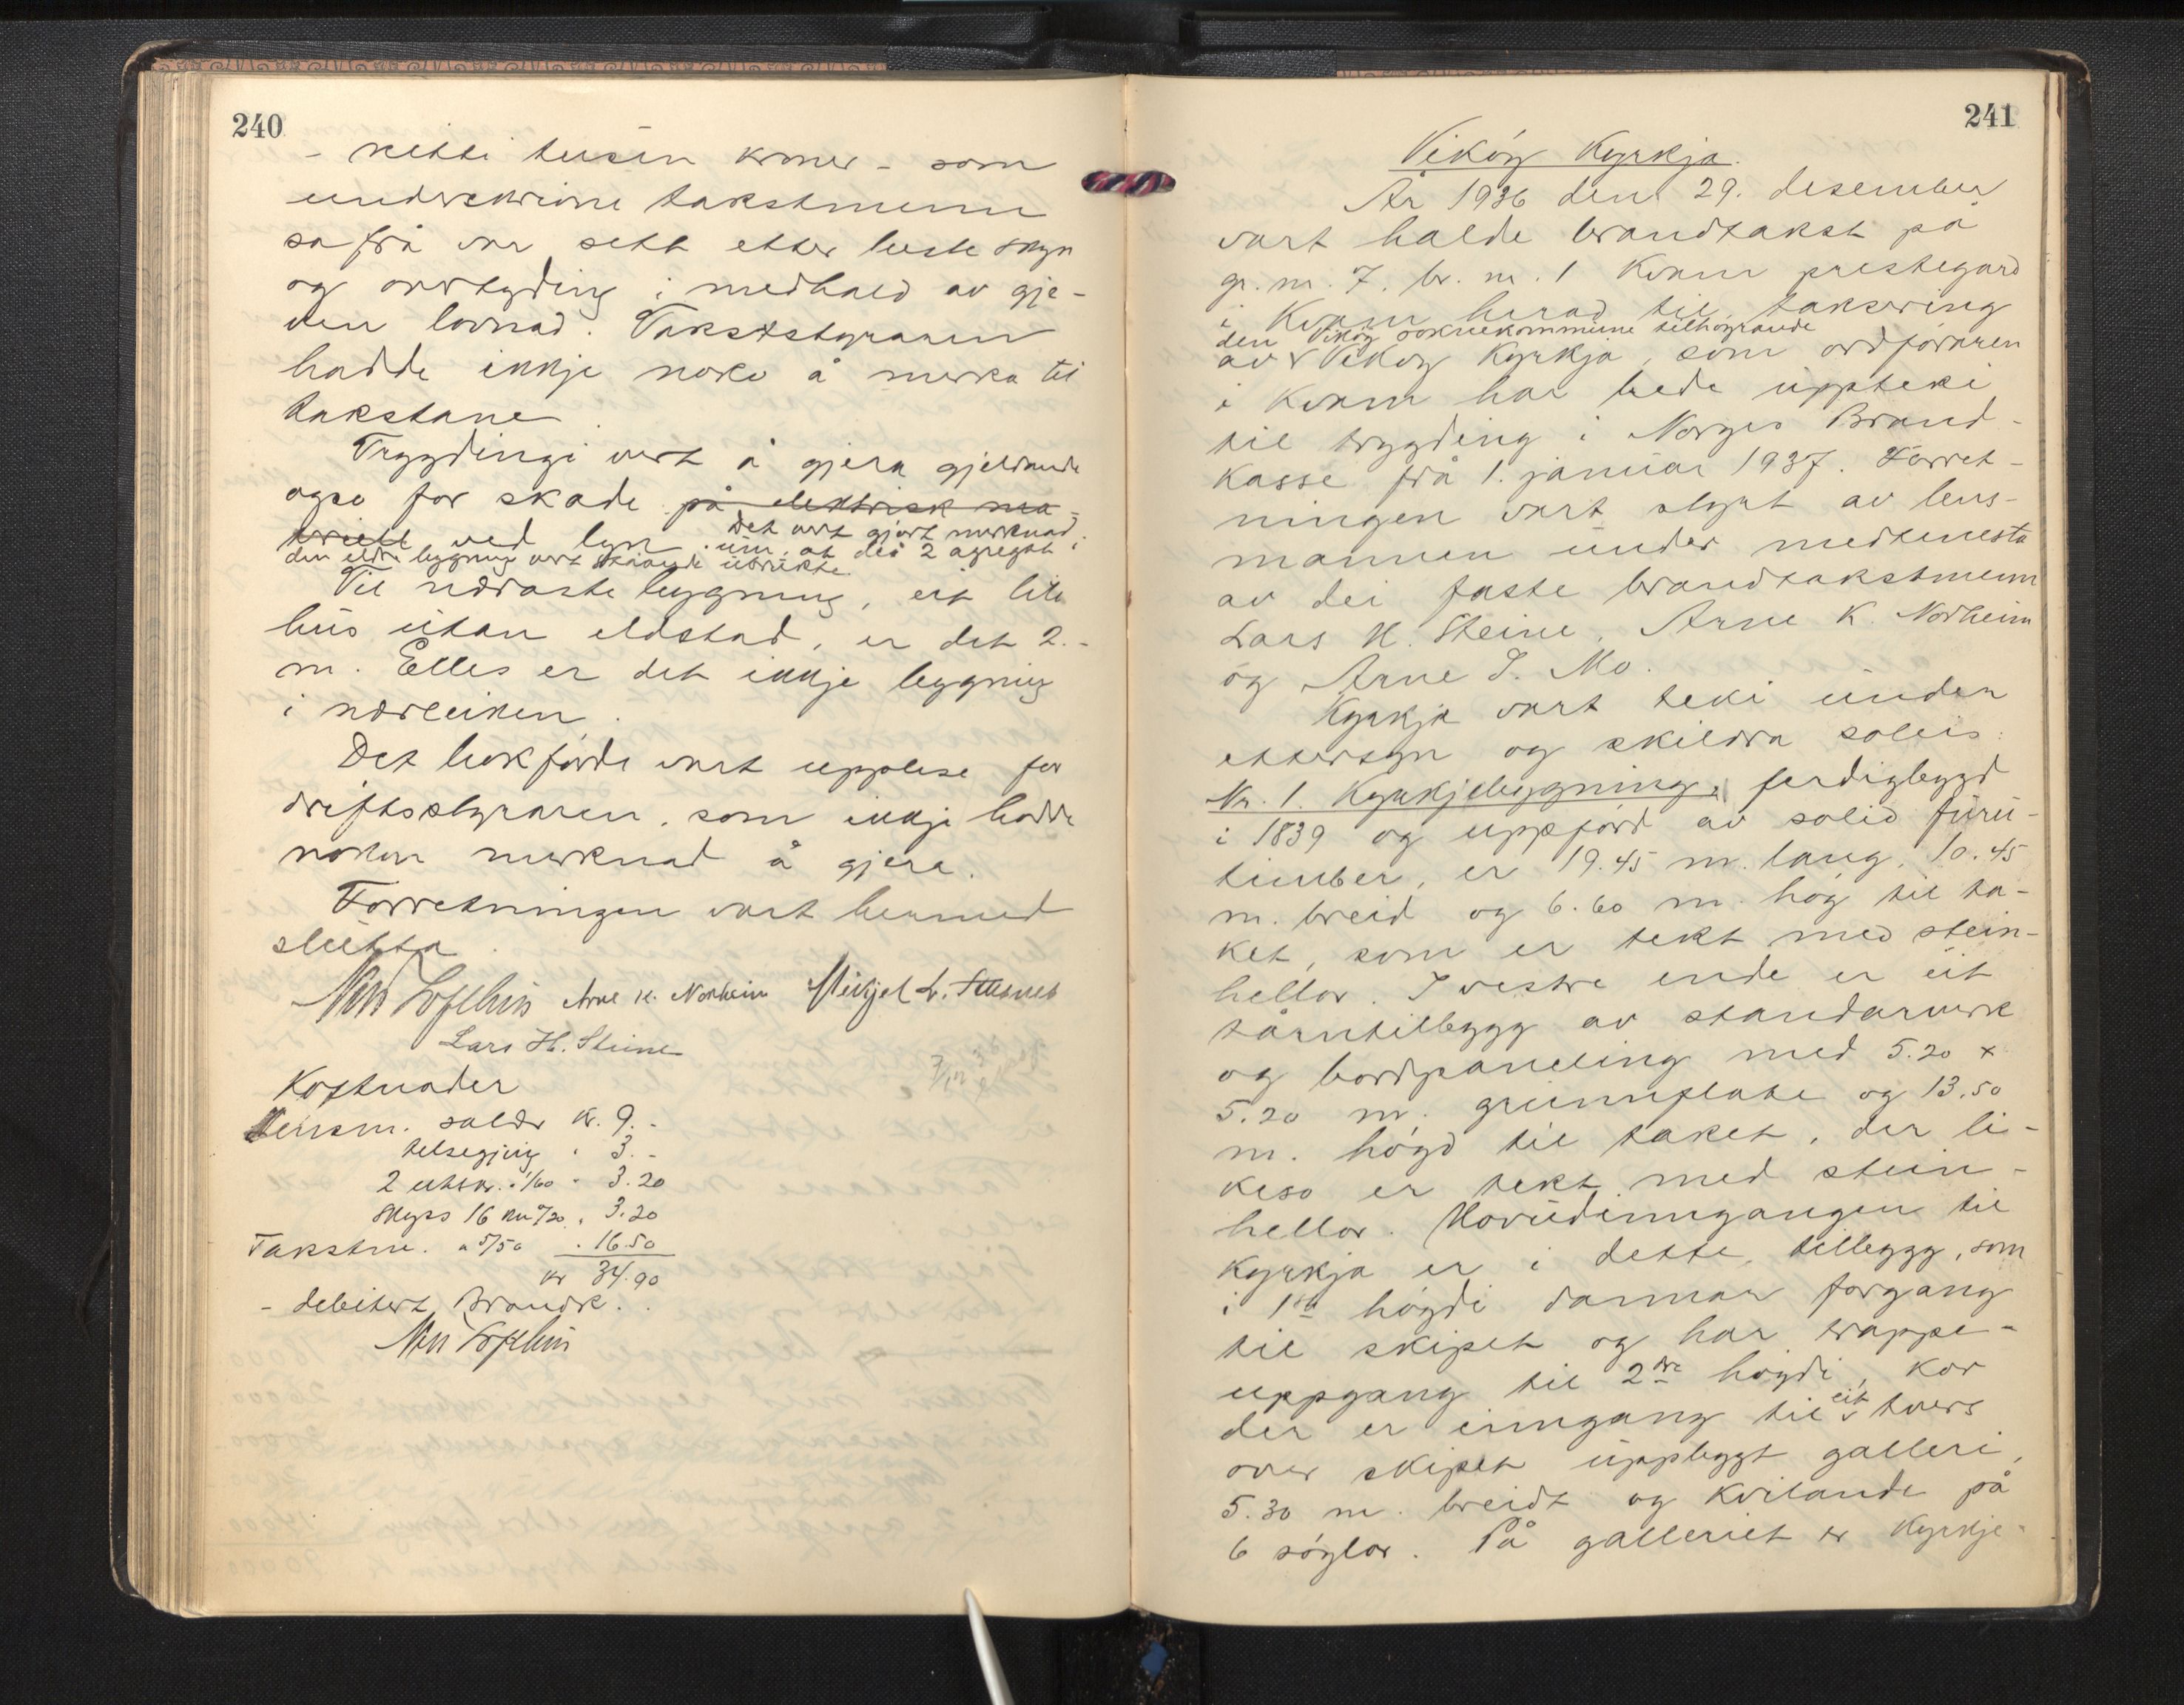 240
- nitti tusen kroner - som
underskrivne takstmenn
sa frå var sett etter beste skyn
og overtyding i medhald av gje-
ven lovnad. Takststyraren
hadde ikkje noko å merka til
takstane.
Trygdingi vert å gjera gjeldande
ogso for skade på elektrisk ma-
teriell ved lyn. Det vert gjort merknad
um, at dei 2 agregat i
den eldre bygning vert ståande ubrukte.
Til næraste bygning, eit lite
hus utan eldstad, er det 2.-
m. Elles er det ikkje bygning
i nærleiken.
Det bokførde vart upplese for
driftsstyraren, som ikkje hadde
nokon merknad å gjera.
Forretningen vart hermed
slutta.
Arne K. Norheim
Lars H. Steine
Kostnader
Lensm. salær kr. 9.-
telsegjing " 3.-
2 utskr. á 1/60 " 3.20
Skyss 16 km 0/20 " 3.20
Takstm. á 5/50 " 16.50
kr 34.90
- debitert Brandk.
241
Vikøy Kyrkja.
År 1936 den 29. desember
vart halde brandtakst på
gr. nr. 7, br. nr. 1 Kvam prestegard
i Kvam herad til taksering
den Vikøy soknekommune tilhøyrande
av Vikøy Kyrkja, som ordføraren
i Kvam har bede uppteki
til trygding i Norges Brand-
kasse frå 1. januar 1937. Forret-
ningen vart styrt av lens-
mannen under medtenesta
av dei faste brandtakstmenn
Lars H. Steine, Arne K. Norheim
og Arne J. Mo.
Kyrkja vart teki under
ettersyn og skildra soleis:
Nr. 1. Kyrkjebygning, ferdigbygd
i 1839 og uppførd av solid furu-
timber, er 19.45 m. lang, 10.45
m. breid og 6.60 m. høg til ta-
ket, som er tekt med stein-
hellor. I vestre ende er eit
tårntilbygg av standarverk
og bordpaneling med 5.20 x
5.20 m. grunnflate og 13.50
m. høgd til taket, der li-
keso er tekt med stein-
hellor. Hovudinngangen til
kyrkja er i dette tilbygg, som
i 1ste høgdi dannar forgang
til skipet og har trappe-
uppgang til 2dre høgdi, kor
der er inngang til eit tvers
over skipet uppbygt galleri,
5.30 m. breidt og kvilande på
6 søylor. På galleriet er kyrkje-